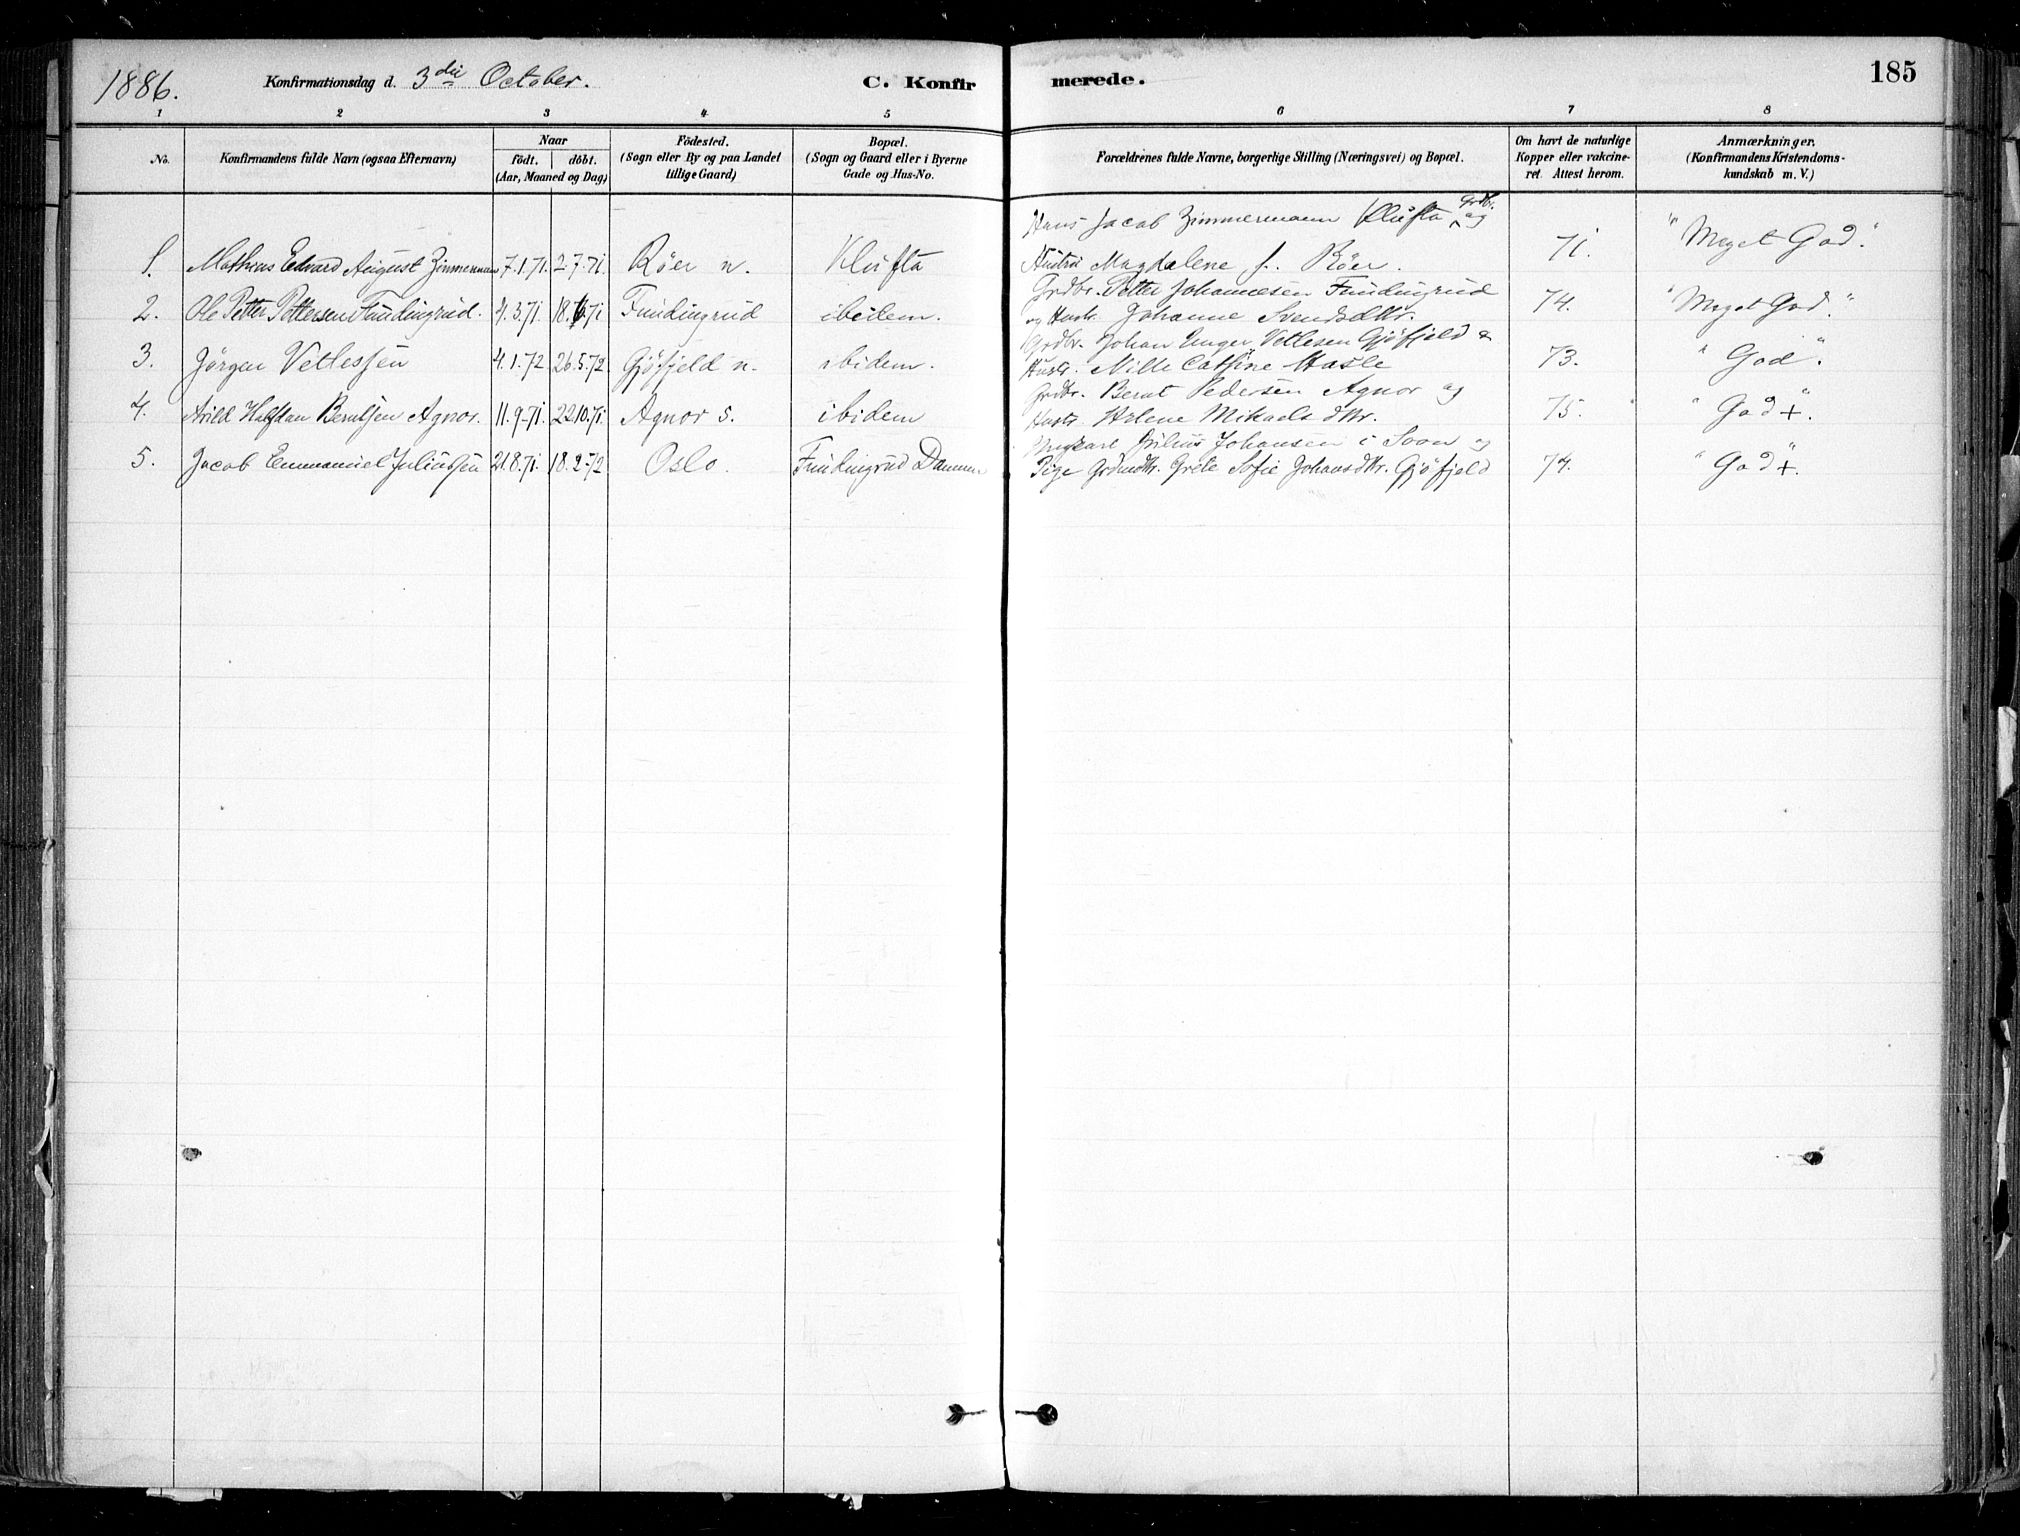 1886. Konfirmationsdag d. 3die October. C. Konfirmerede. 185
1 2 3 4 5 6 7 8
No. Konfirmandens fulde Navn (ogsaa Efternavn) Naar födt. döbt. (Aar, Maaned og Dag) Födested. (Sogn eller By og paa Landet tillige Gaard) Bopæl. (Sogn og Gaard eller i Byerne Gade og Hus-No. Forældrenes fulde Navne, borgerlige Stilling (Næringsvei) og Bopæl. Om havt de naturlige Kopper eller vakcineret. Attest herom. Anmærkninger. (Konfirmandens Kristendomskundskab m. V.)
Hans Jacob Zimmermann Klufta Grdbr. og
1. Mathias Edvard August Zimmermann 7.1.71. 2.7.71. Röer n. Klufta Hustru Magdalene f. Röer. 71. "Meget God."
Grdbr. Petter Johannesen Fundingrud
2. Ole Petter Pettersen Fundingrud. 4.3.71. 18.6.71 Fundingrud ibidem. og Hustr. Johanne Svendsdtr. 74. "Meget God."
Grdbr. Johan Unger Vetlesen Gjöfjeld &
3. Jörgen Vetlessen 4.1.72 26.5.72. Gjöfjeld n. ibidem. Hustr. Nille Cathine Hasle 73. "God".
Grdbr. Bernt Pedersen Agnor og
4. Arild Halfdan Berntsen Agnor. 11.9.71. 22.10.71. Agnor s. ibidem Hustr. Helene Mikaelsdtr. 75. "God+".
Ungkarl Julius Johansen i Soon og
5. Jacob Emmanuel Juliussen 21.8.71. 18.2.72 Oslo. Fundingrud Dammen Pige Grdmdtr. Grete Sofie Johansdtr. Gjöfjeld 74. "God+".